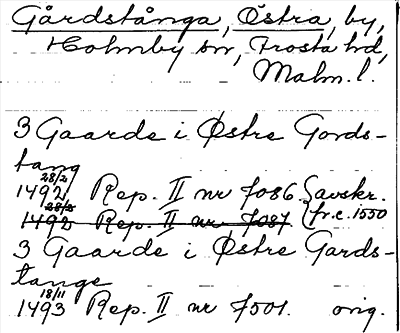 Gårdstånga, Östra, by,
Holmby sn, Frosta hd,
Malm. l.
3 Gaarde i Østre Gords-
tang
1492 28/2 Rep. II nr 7086. {avskr.
1492 28/2 Rep. II nr 7087 {fr. c. 1550
3 Gaarde i Østre Gards-
tange
1493 18/11 Rep. II nr 7501. orig.